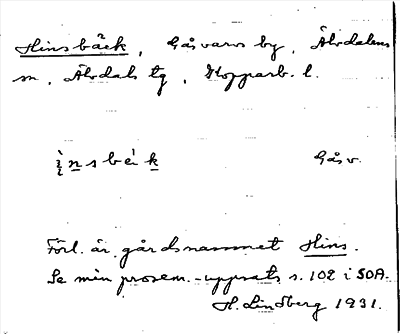 Hinsbäck, Gåsvarvs by, Älvdalens
sn, Älvdals tg, Kopparb. l.
ìnsbèk Gåsv.
Förl. är gårdsnamnet Hins.
Se min prosem.-uppsats s. 102 i SOA.
H. Lindberg 1931.